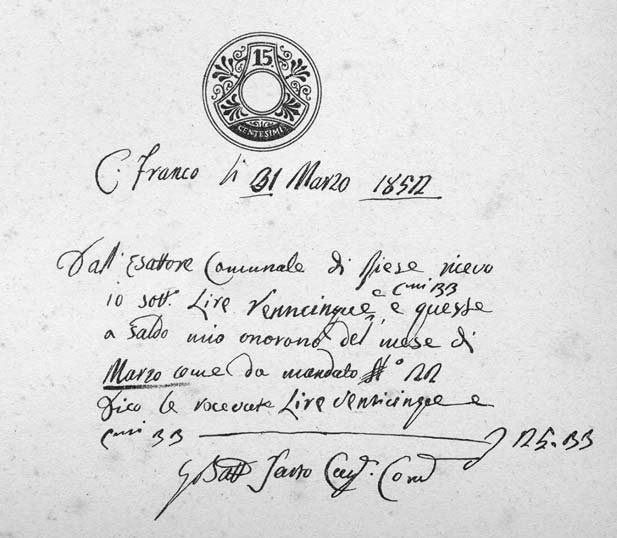 15
CENTESIMI
C. Franco li 31 Marzo 1852
Dall'Esattore Comunale di Riese ricevo
io sott.º Lire Venticinque e Cmi 33 e queste
a Saldo mio onorario del mese di
Marzo come da mandato Nº 22
Dico le ricevute Lire venticinque e
Cmi 33 25.33
G Batt Sarto Com